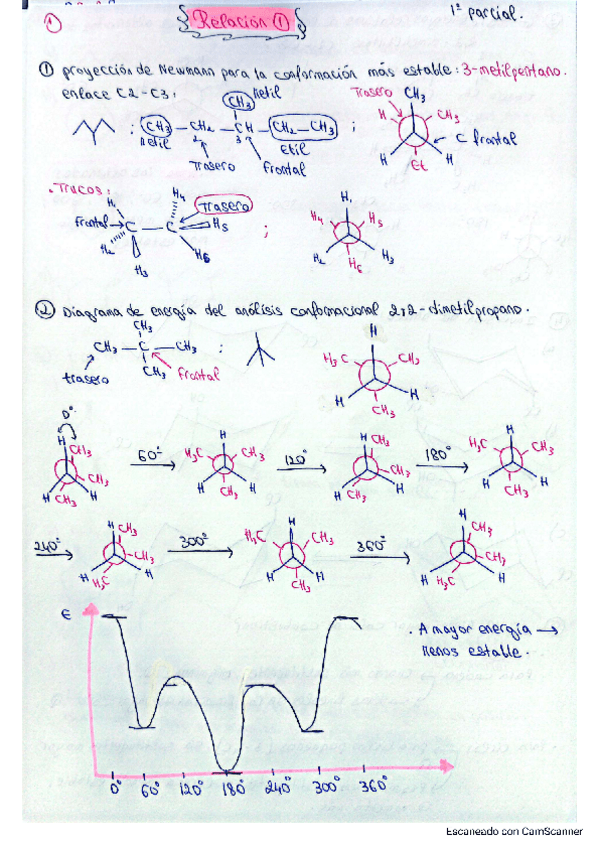 1
Relación 1
1º parcial.
1 proyección de Newmann para la conformación más estable: 3-metilpentano.
enlace C2-C3.
Metil
CH3
CH3 - CH2 - CH - CH2 - CH3
Metil
2
3
Etil
Trasero
frontal
Trasero
CH3
H
CH3
C frontal
H
H
Et
Trucos:
H1
H4
Trasero
frontal
C
C
H5
H2
H3
H6
H1
H4
H5
H2
H3
H6
2 Diagrama de energía del análisis conformacional 2,2-dimetilpropano.
CH3
CH3 - C - CH3 :
CH3
trasero
frontal
H
H3C
CH3
H
H
CH3
0º
H
CH3
CH3
H
CH3
H
60º
H
H3C
CH3
H
H
CH3
120º
H
CH3
CH3
H
CH3
H
180º
H
H3C
CH3
H
H
CH3
240º
H
CH3
CH3
H
H3C
H
300º
H
H3C
CH3
H
CH3
H
360º
H
CH3
CH3
H
H3C
H
E
. A mayor energía →
Menos estable.
0º 60º 120º 180º 240º 300º 360º
Escaneado con CamScanner